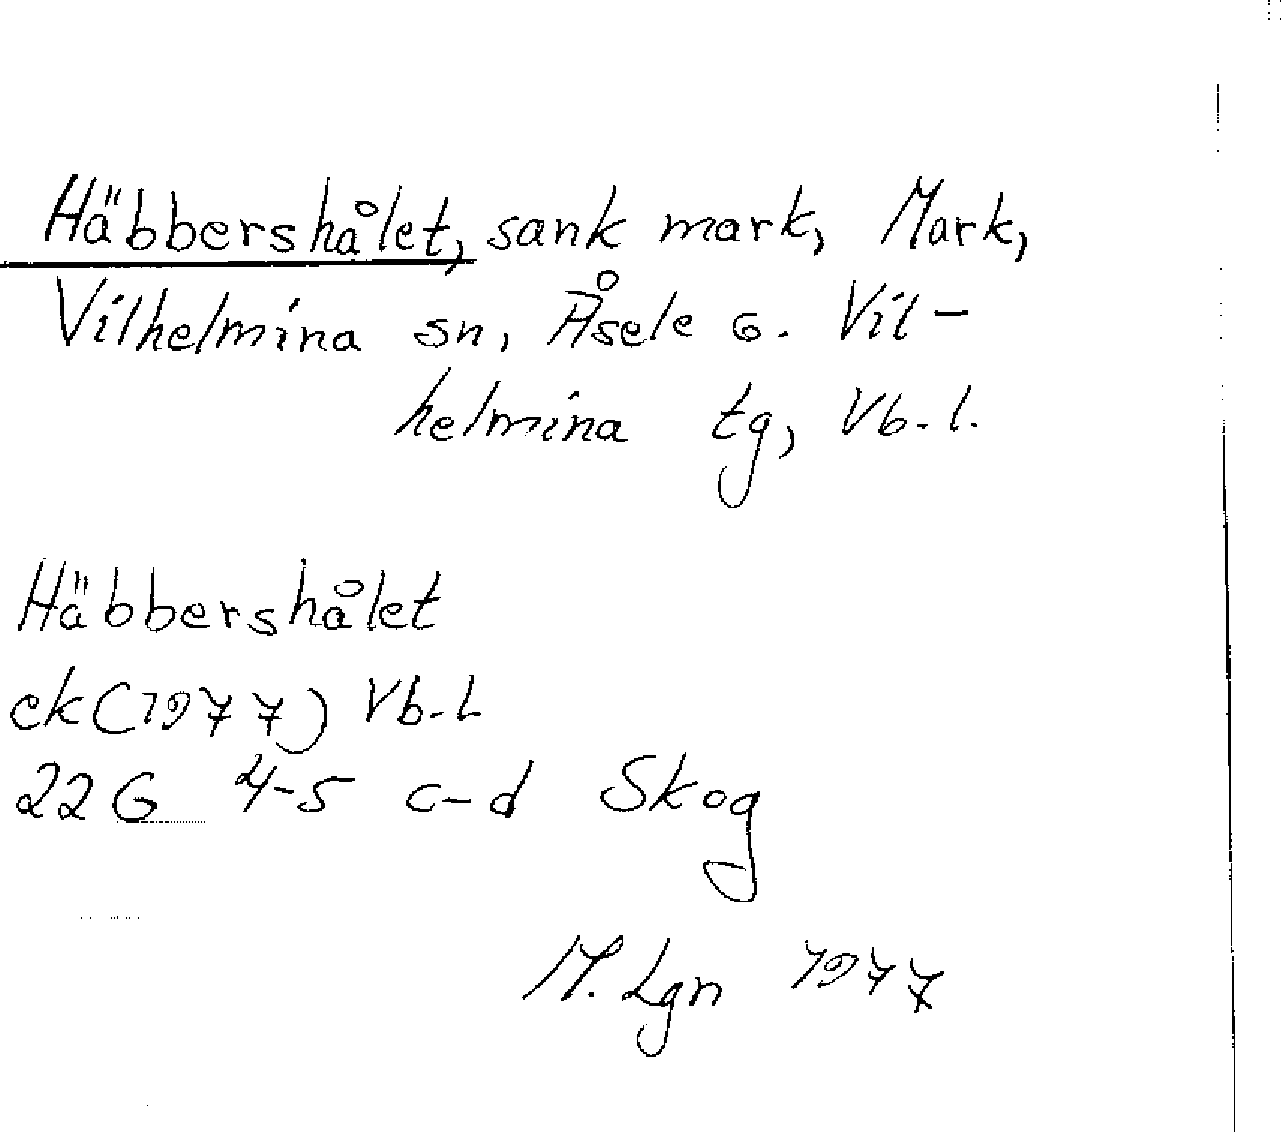 Häbbershålet, sank mark, Mark,
Vilhelmina sn, Åsele o. Vil-
helmina tg, Vb. l.
Häbbershålet
ek (1977) Vb. L
22 G 4-5 c-d Skog
M. Lgn 1977